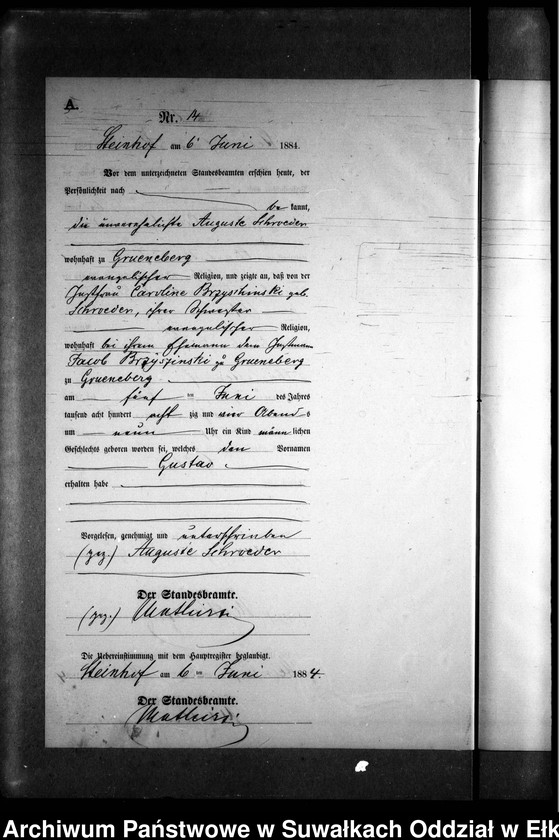 A.
Nr. 14
Steinhof am 6 Juni 1884.
Vor dem unterzeichneten Standesbeamten erschien heute, der
Persönlichkeit nach
be kannt,
die unverehelichte Auguste Schroeder
wohnhaft zu Grueneberg
evangelischer Religion, und zeigte an, daß von der
Instfrau Caroline Brzyschinski geb.
Schroeder, ihrer Schwester
evangelischer Religion,
wohnhaft bei ihrem Ehemann dem Instmann
Jacob Brzyszinski zu Grueneberg
zu Grueneberg
am fünf ten Juni des Jahres
tausend acht hundert acht zig und vier Abend s
um neun Uhr ein Kind männ lichen
Geschlechts geboren worden sei, welches den Vornamen
Gustav
erhalten habe
Vorgelesen, genehmigt und unterschrieben
(gez.) Auguste Schroeder
Der Standesbeamte.
(gez.)
Die Uebereinstimmung mit dem Hauptregister beglaubigt.
Steinhof am 6 ten Juni 1884.
Der Standesbeamte.
Archiwum Państwowe w Suwałkach Oddział w Ełk